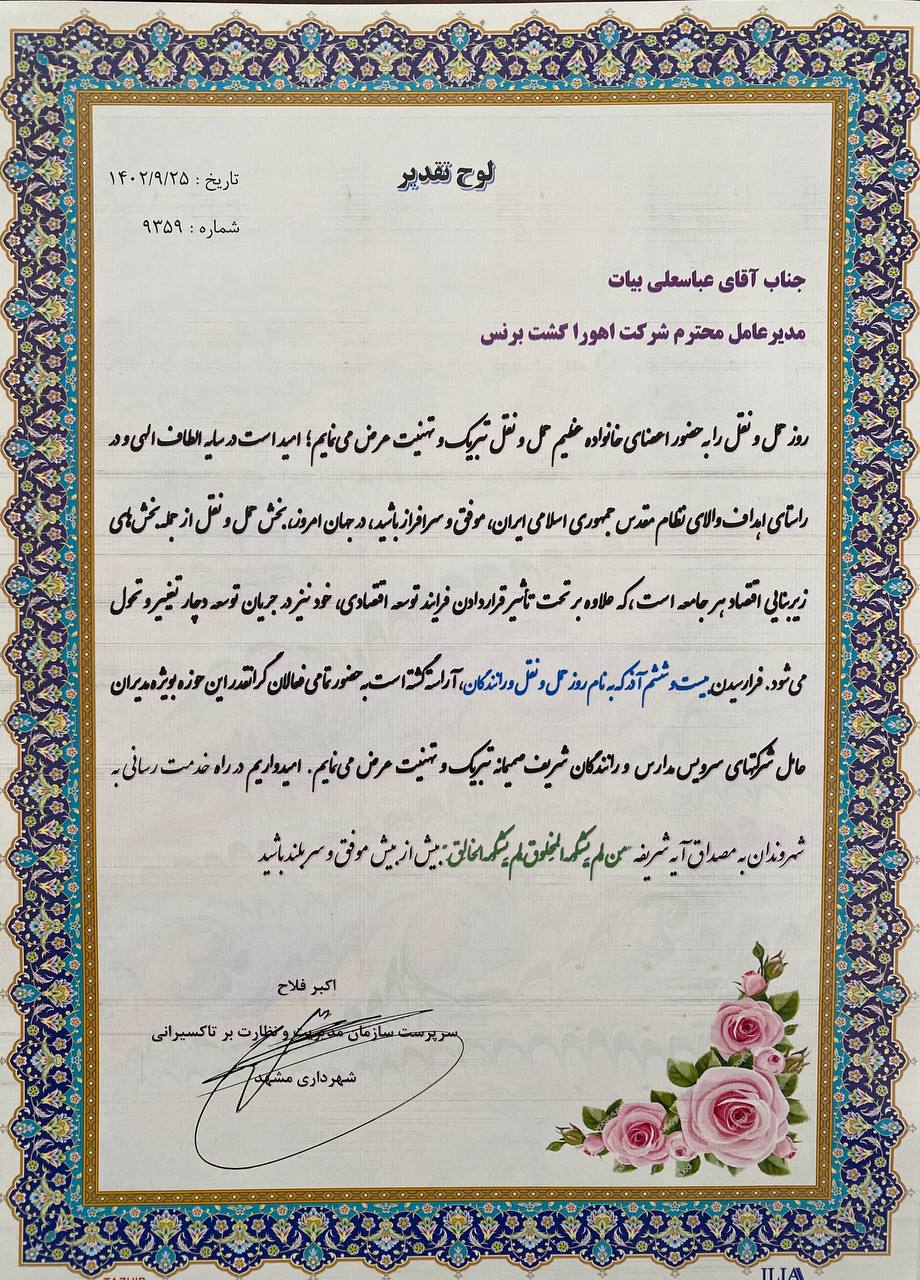 لوح تقدیر
تاریخ : ۱۴۰۲/۹/۲۵
شماره : ۹۳۵۹
جناب آقای عباسعلی بیات
مدیرعامل محترم شرکت اهورا گشت برنس
روز حمل و نقل را به حضور اعضای خانواده عظیم حمل و نقل تبریک و تهنیت عرض می‌نمایم؛ امید است در سایه الطاف الهی و در
راستای اهداف والای نظام مقدس جمهوری اسلامی ایران، موفق و سرافراز باشید، در جهان امروز، بخش حمل و نقل از جمله بخش‌های
زیربنایی اقتصاد هر جامعه است، که علاوه بر تحت تأثیر قراردادن فرایند توسعه اقتصادی، خود نیز در جریان توسعه دچار تغییر و تحول
می‌شود. فرارسیدن بیست و ششم آذر که به نام روز حمل و نقل و رانندگان، آراسته گشته است به حضور تمامی فعالان گرانقدر این حوزه بویژه مدیران
عامل شرکتهای سرویس مدارس و رانندگان شریف صمیمانه تبریک و تهنیت عرض می‌نمایم. امیدواریم در راه خدمت رسانی به
شهروندان به مصداق آیه شریفه "من لم یشکر المخلوق لم یشکر الخالق" بیش از بیش موفق و سربلند باشید
اکبر فلاح
سرپرست سازمان مدیریت و نظارت بر تاکسیرانی
شهرداری مشهد
ILIA